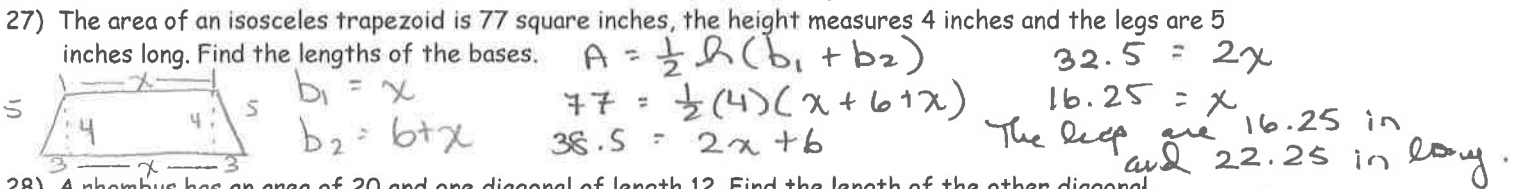 27) The area of an isosceles trapezoid is 77 square inches, the height measures 4 inches and the legs are 5
inches long. Find the lengths of the bases.
A = 1/2 h(b₁ + b₂)
32.5 = 2x
x
b₁ = x
77 = 1/2 (4)(x + 6+x)
16.25 = x
5
5
4
4
b₂ = 6+x
38.5 = 2x + 6
The legs are 16.25 in
and 22.25 in long.
3 x 3
28) A rhombus has an area of 20 and one diagonal of length 12. Find the length of the other diagonal